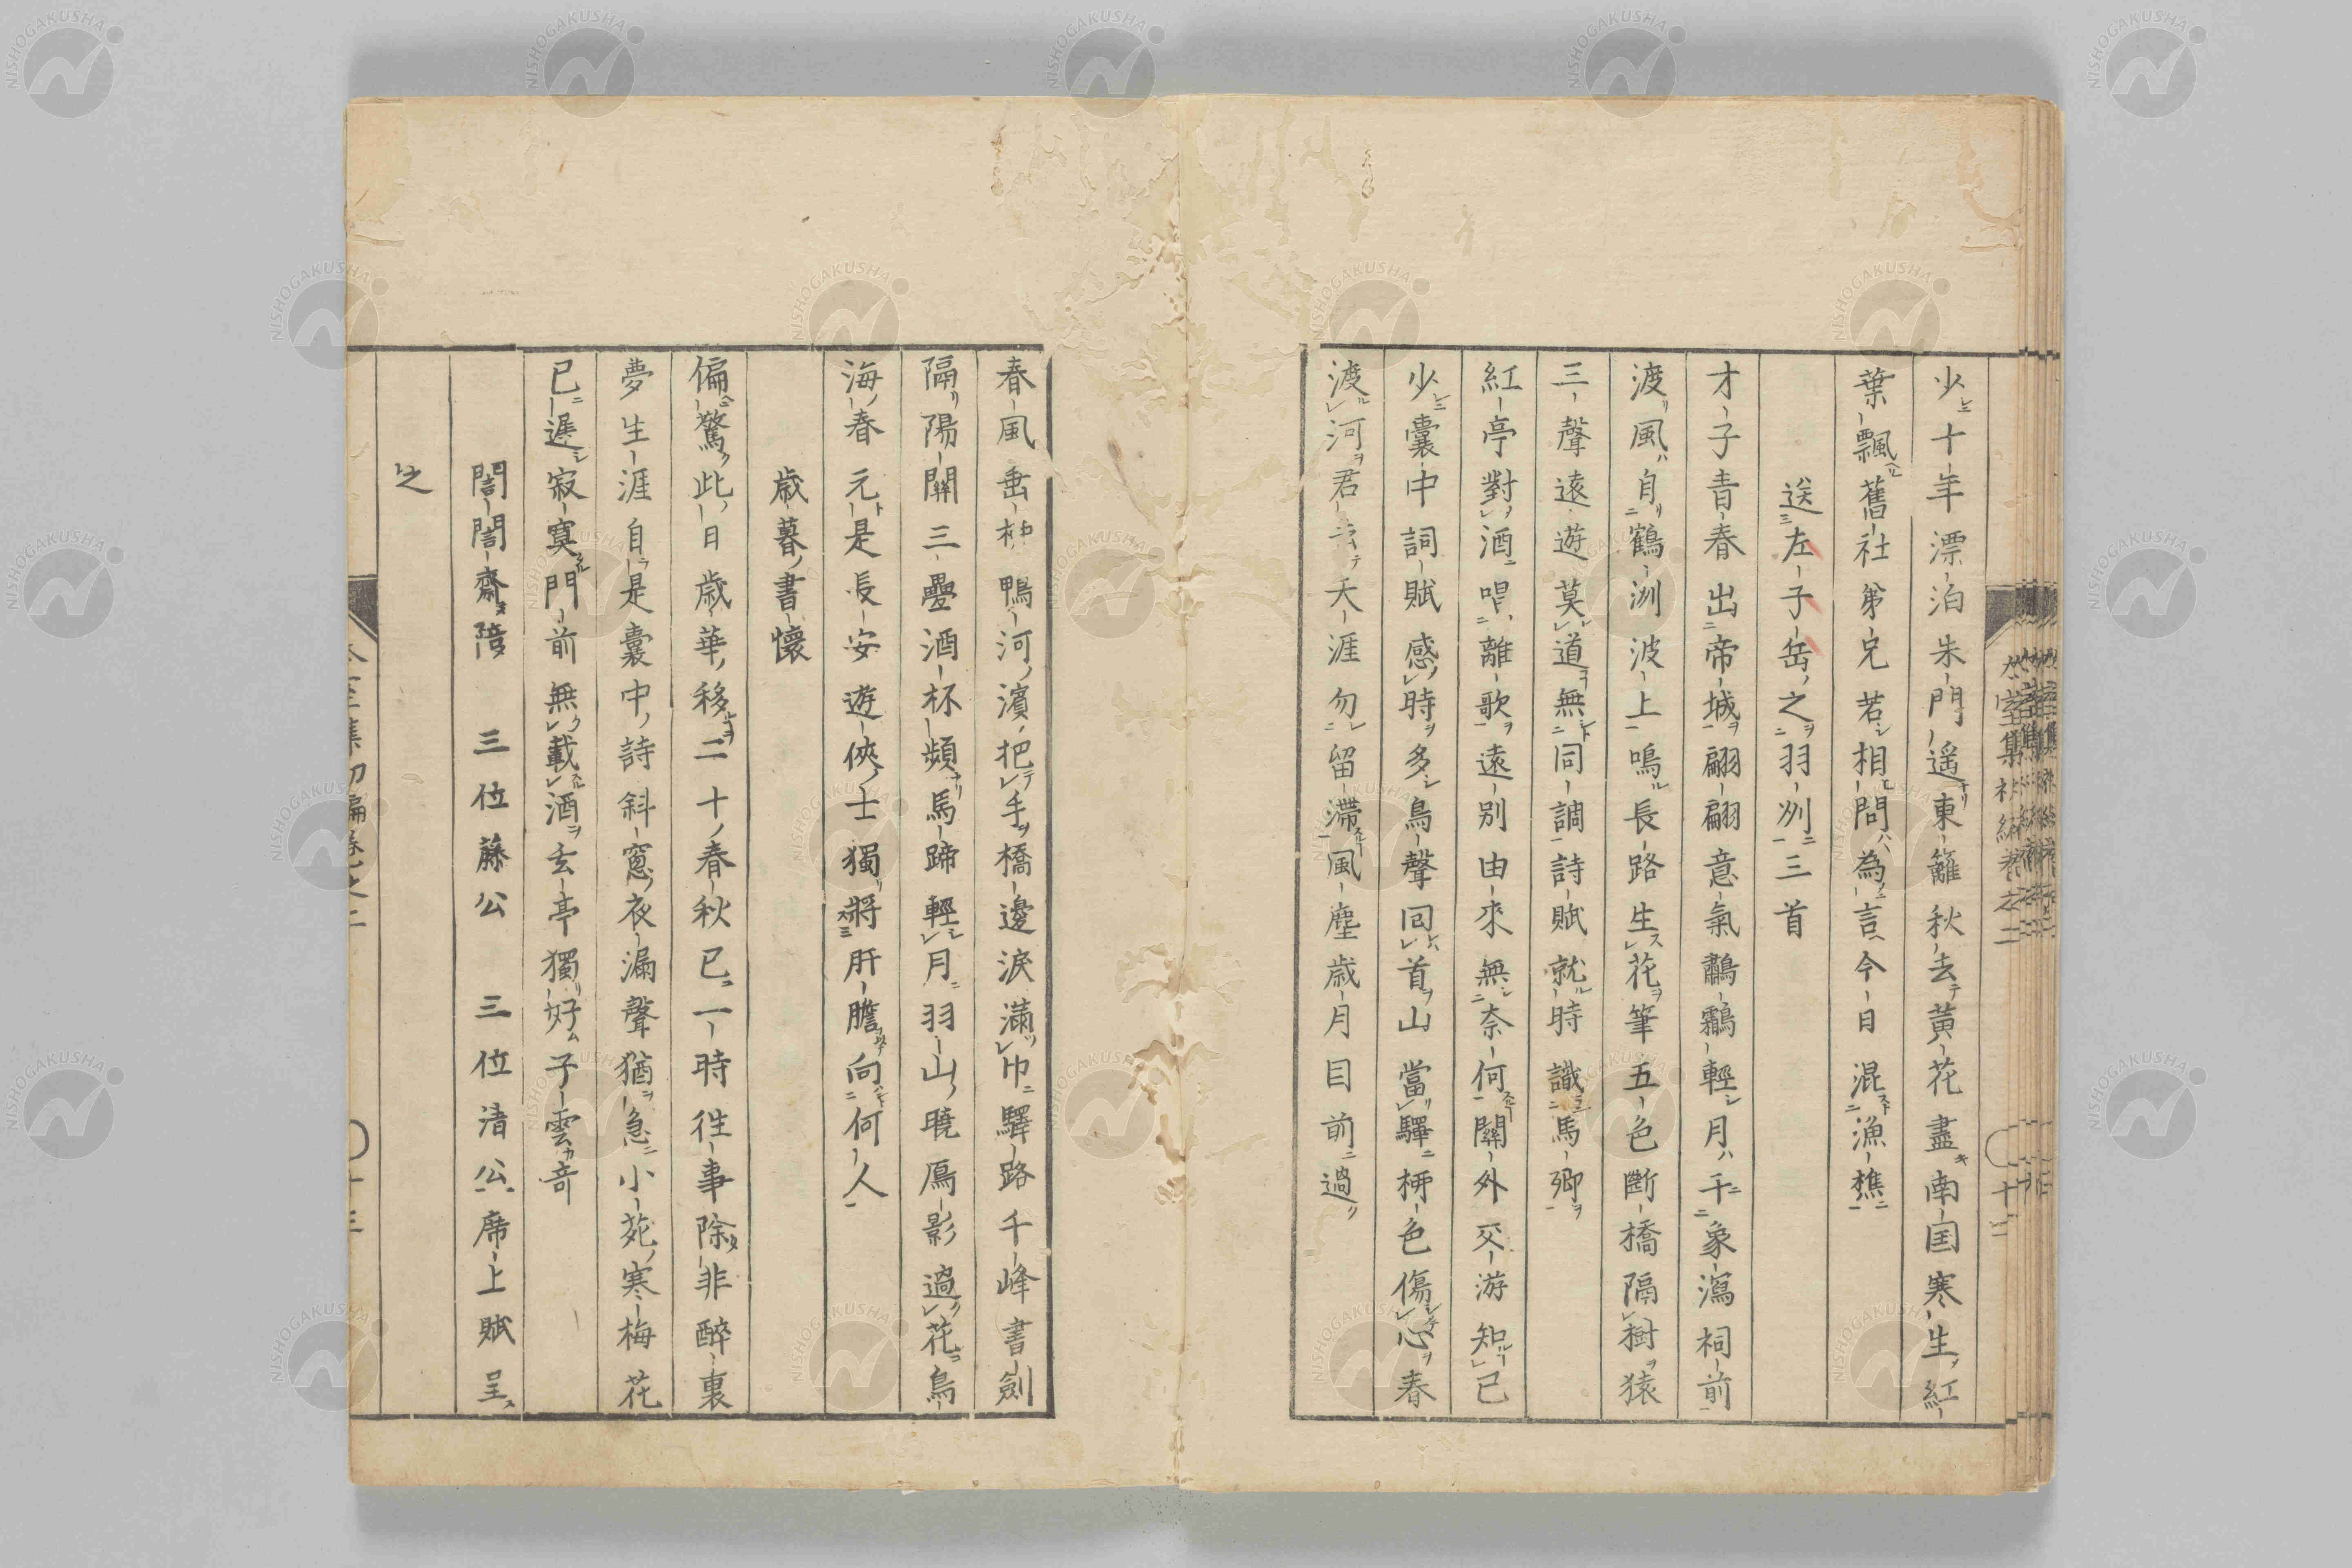 少十年漂泊朱門遥東籬秋去黄花盡南国寒生紅
葉飄舊社弟兄若相問為言今日混漁樵
送左子岳之羽州三首
才子青春出帝城翩翩意氣鸘輕月千象瀉祠前
渡風自鶴洲波上鳴長路生花筆五色断橋隔樹猿
三聲遠遊莫道無同調詩賦就時識馬卿
紅亭對酒唱離歌遠別由來無奈何關外交游知已
少囊中詞賦感時多鳥聲回首山當驛柳色傷心春
渡河君去天涯勿留滞風塵歳月目前過
春風垂柳鴨河濱把手橋邊淚滿巾驛路千峰書劍
隔陽關三疊酒杯頻馬蹄輕月羽山暁鴈影過花鳥
海春元是長安遊侠士獨將肝膽向何人
歳暮書懐
偏驚此日歳華移二十春秋已一時徃事除非醉裏
夢生涯自是囊中詩斜窓夜漏聲猶急小苑寒梅花
已遅寂寞門前無載酒玄亭獨好子雲竒
誾誾齋陪 三位藤公 三位清公席上賦呈
之